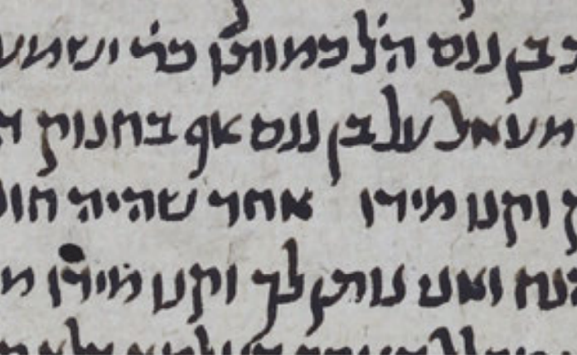 בן ננס הל' כמותו כר' ישמע
מעאל על בן ננס אף בחנוק ה
וקנו מידו אחר שהיה חונ
הנח ואני נותן לך וקנו מידו מ